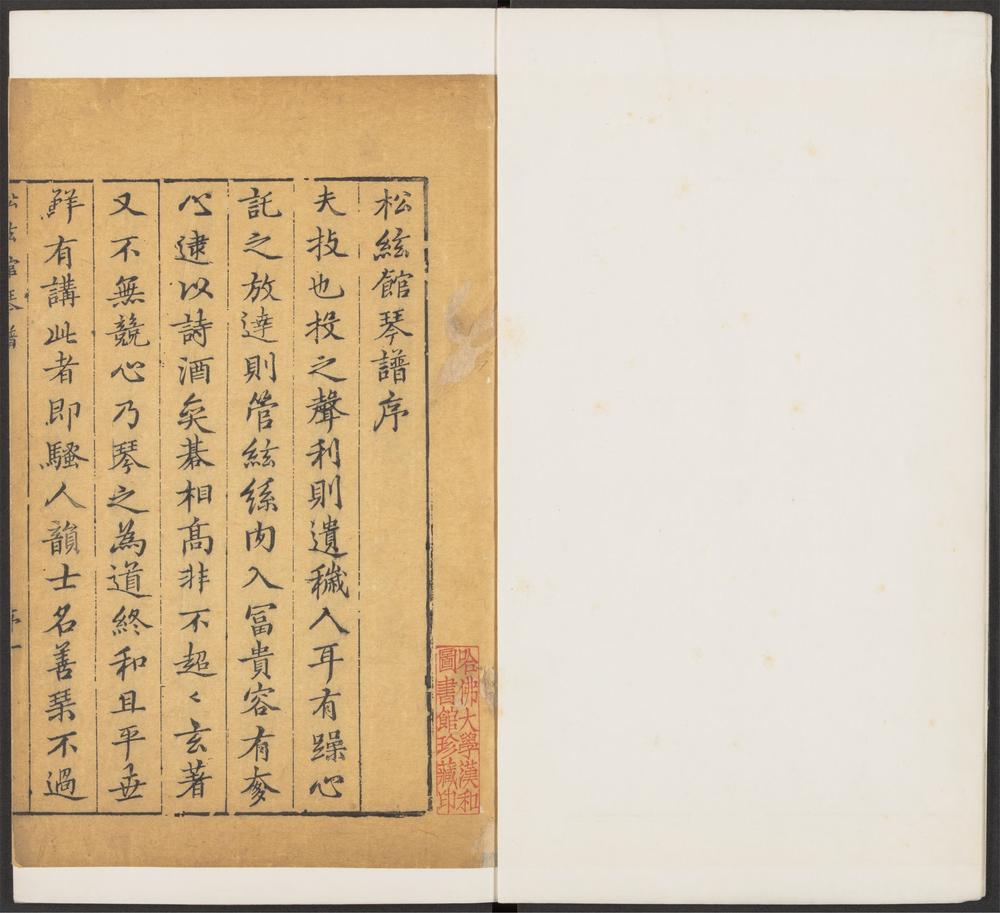 松絃館琴譜序
夫技也投之聲利則遺穢入耳有躁心
託之放達則管絃絲肉入冨貴容有奓
心逮以詩酒奕碁相高非不超〻玄著
又不無競心乃琴之為道終和且平世
鮮有講此者即騷人韻士名善琹不過
松絃館琴譜
序一
哈佛大學漢和
圖書館珍藏印